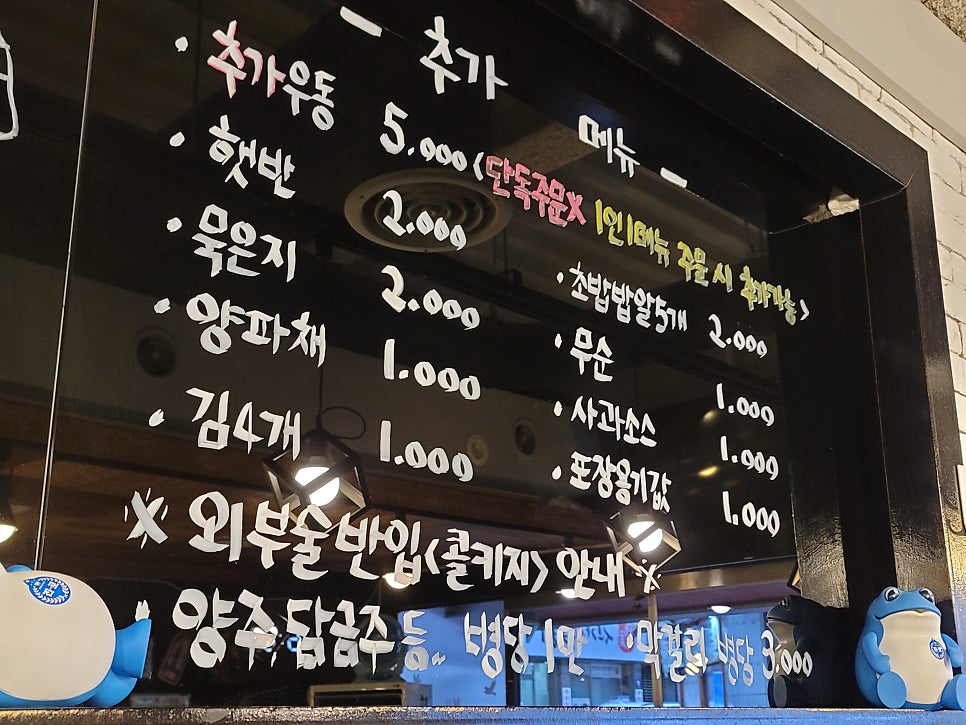 - 추가 메뉴 -
· 추가우동 5.000 <단독주문X 1인1메뉴 주문 시 추가가능>
· 햇반 2.000
· 묵은지 2.000
· 양파채 1.000
· 김4개 1.000
· 초밥밥알5개 2.000
· 무순 1.000
· 사과소스 1.000
· 포장용기값 1.000
※ 외부술반입<콜키지> 안내 ※
양주,담금주 등.. 병당 1만 막걸리 병당 3.000